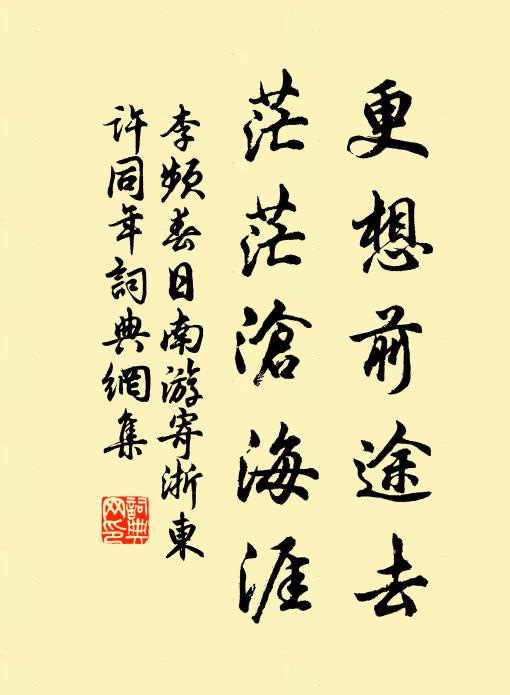 更想前途去
茫茫滄海涯
李頻春日南游寄浙東
許同年詞典網集
詞典
网印